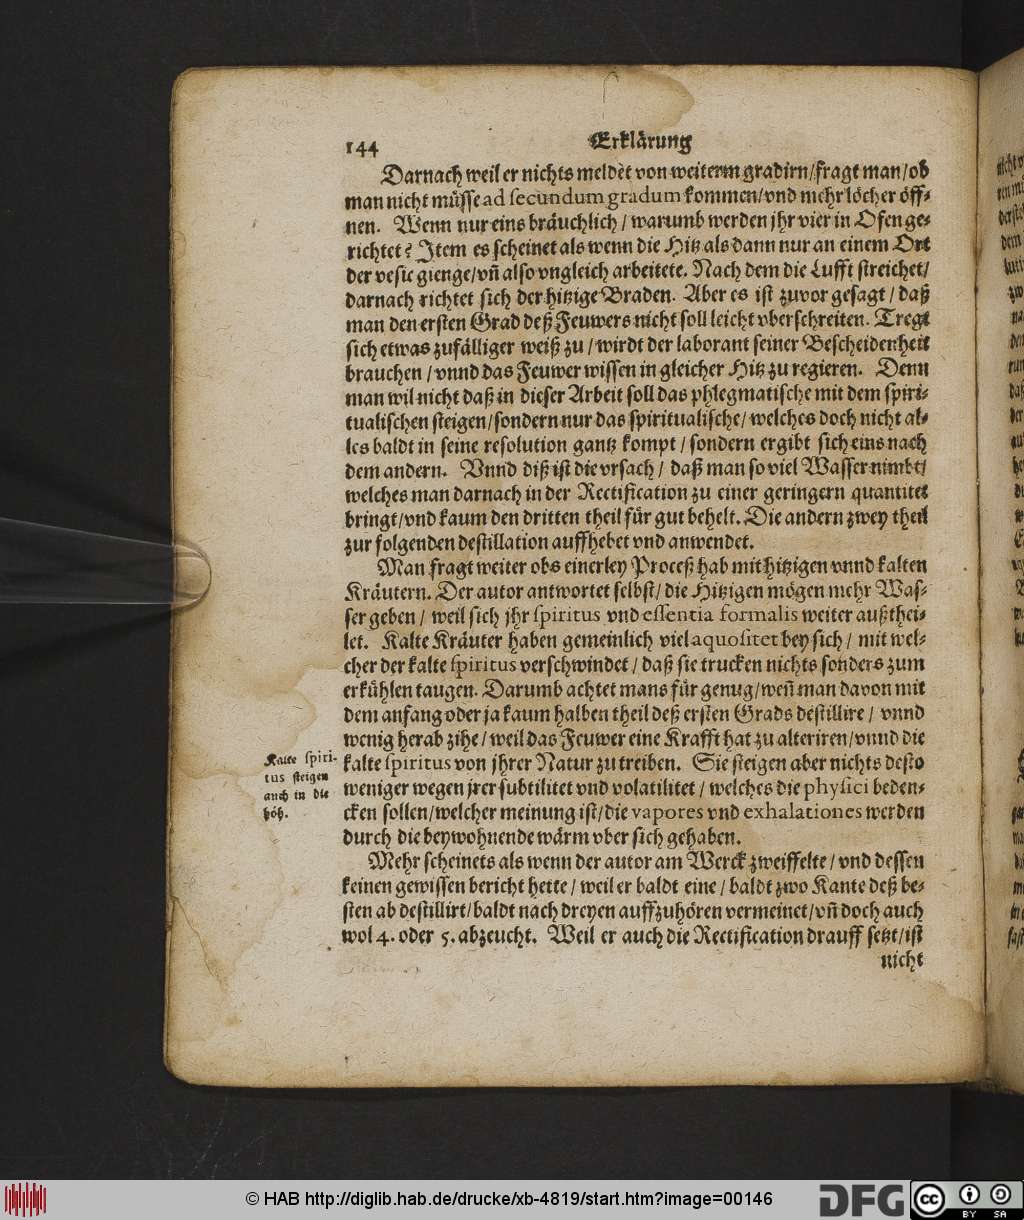 144 Erklärung
Darnach weil er nichts meldet von weiterm gradirn/fragt man/ob
man nicht müsse ad secundum gradum kommen/vnd mehr löcher öff-
nen. Wenn nur eins bräuchlich / warumb werden jhr vier in Ofen ge-
richtet? Item es scheinet als wenn die Hitz als dann nur an einem Ort
der vesic gienge/vñ also vngleich arbeitete. Nach dem die Lufft streichet/
darnach richtet sich der hitzige Braden. Aber es ist zuvor gesagt / daß
man den ersten Grad deß Feuwers nicht soll leicht vberschreiten. Tregt
sich etwas zufälliger weiß zu / wirdt der laborant seiner Bescheidenheit
brauchen / vnnd das Feuwer wissen in gleicher Hitz zu regieren. Denn
man wil nicht daß in dieser Arbeit soll das phlegmatische mit dem spiri-
tualischen steigen/sondern nur das spiritualische/welches doch nicht al-
les baldt in seine resolution gantz kompt / sondern ergibt sich eins nach
dem andern. Vnnd diß ist die vrsach / daß man so viel Wasser nimbt/
welches man darnach in der Rectification zu einer geringern quantitet
bringt/vnd kaum den dritten theil für gut behelt. Die andern zwey theil
zur folgenden destillation auffhebet vnd anwendet.
Man fragt weiter obs einerley Proceß hab mit hitzigen vnnd kalten
Kräutern. Der autor antwortet selbst/die Hitzigen mögen mehr Was-
ser geben / weil sich jhr spiritus vnd essentia formalis weiter außthei-
let. Kalte Kräuter haben gemeinlich viel aquositet bey sich / mit wel-
cher der kalte spiritus verschwindet / daß sie trucken nichts sonders zum
erkühlen taugen. Darumb achtet mans für genug/weñ man davon mit
dem anfang oder ja kaum halben theil deß ersten Grads destillire / vnnd
wenig herab zihe / weil das Feuwer eine Krafft hat zu alteriren/vnnd die
kalte spiritus von jhrer Natur zu treiben. Sie steigen aber nichts desto
weniger wegen jrer subtilitet vnd volatilitet / welches die physici beden-
cken sollen/welcher meinung ist/die vapores vnd exhalationes werden
durch die beywohnende wärm vber sich gehaben.
Kalte spiri-
tus steigen
auch in die
höh.
Mehr scheinets als wenn der autor am Werck zweiffelte / vnd dessen
keinen gewissen bericht hette / weil er baldt eine / baldt zwo Kante deß be-
sten ab destillirt/baldt nach dreyen auffzuhören vermeinet/vñ doch auch
wol 4. oder 5. abzeucht. Weil er auch die Rectification drauff setzt/ist
nicht
© HAB http://diglib.hab.de/drucke/xb-4819/start.htm?image=00146
DFG
cc BY SA